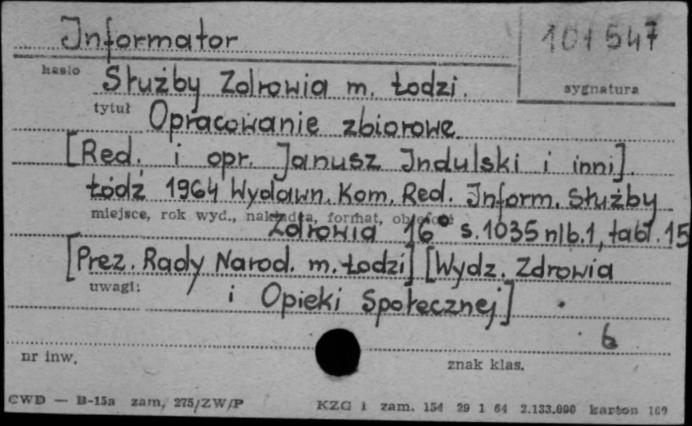 Informator
101547
hasło Służby Zdrowia m. Łodzi.
sygnatura
tytuł Opracowanie zbiorowe.
[Red. i opr. Janusz Indulski i inni].
Łódź 1964 Wydawn. Kom. Red. Inform. Służby
miejsce, rok wyd., nakładca, format, objętość
Zdrowia 16° s. 1035 nlb. 1, tabl. 15
[Prez. Rady Narod. m. Łodzi] [Wydz. Zdrowia
uwagi: i Opieki Społecznej]
6
nr inw.
znak klas.
CWD — B-15a zam. 275/ZW/P
KZG 1 zam. 154 29 1 64 2.133.000 karton 169